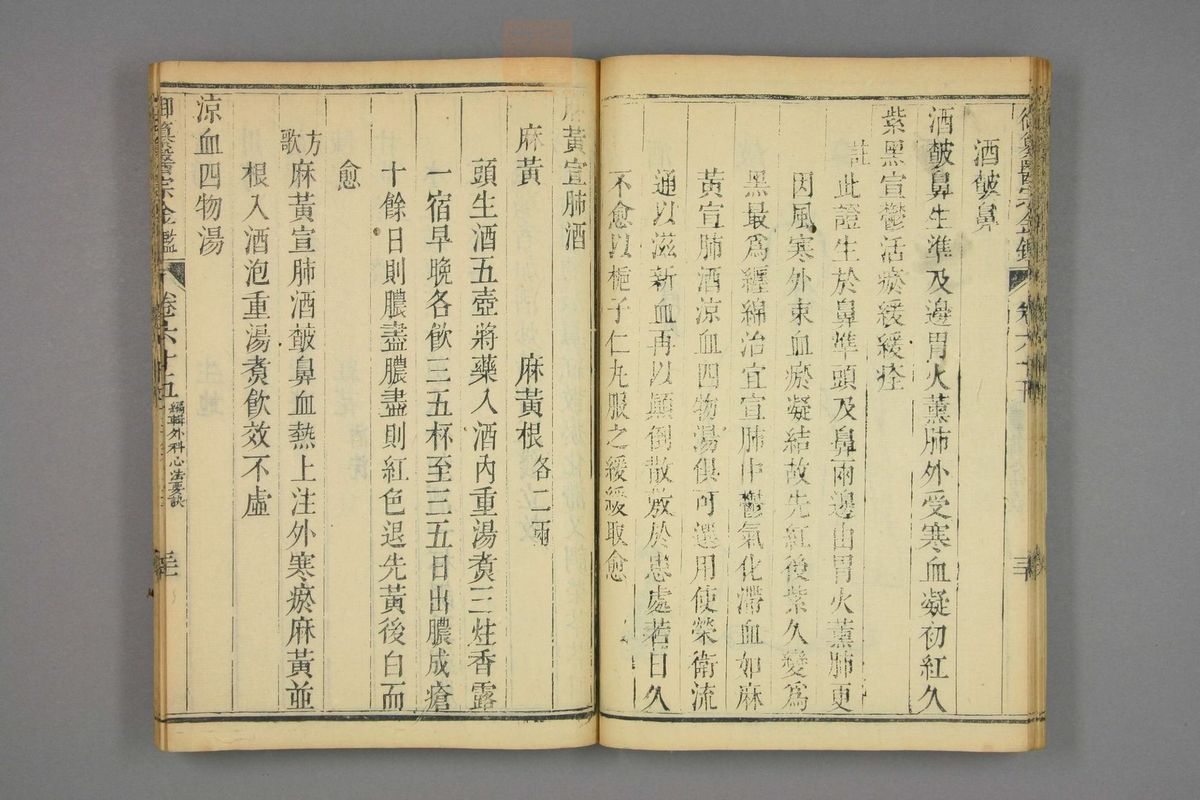 酒皶鼻
酒皶鼻生準及邊胃火薰肺外受寒血凝初紅久
紫黑宣鬱活瘀緩緩痊
註
此證生於鼻準頭及鼻兩邊由胃火薰肺更
因風寒外束血瘀凝結故先紅後紫久變爲
黑最爲纒綿治宜宣肺中鬱氣化滯血如麻
黃宣肺酒凉血四物湯俱可選用使榮衛流
通以滋新血再以顛倒散敷於患處若日久
不愈以梔子仁丸服之緩緩取愈
麻黃宣肺酒
麻黃 麻黃根各二兩
頭生酒五壺將藥入酒內重湯煑三炷香露
一宿早晚各飲三五杯至三五日出膿成瘡
十餘日則膿盡膿盡則紅色退先黃後白而
愈
方歌
麻黃宣肺酒皶鼻血熱上注外寒瘀麻黃並
根入酒泡重湯煑飲效不虛
涼血四物湯
御纂醫宗金鑑 卷六十五 編輯外科心法要訣